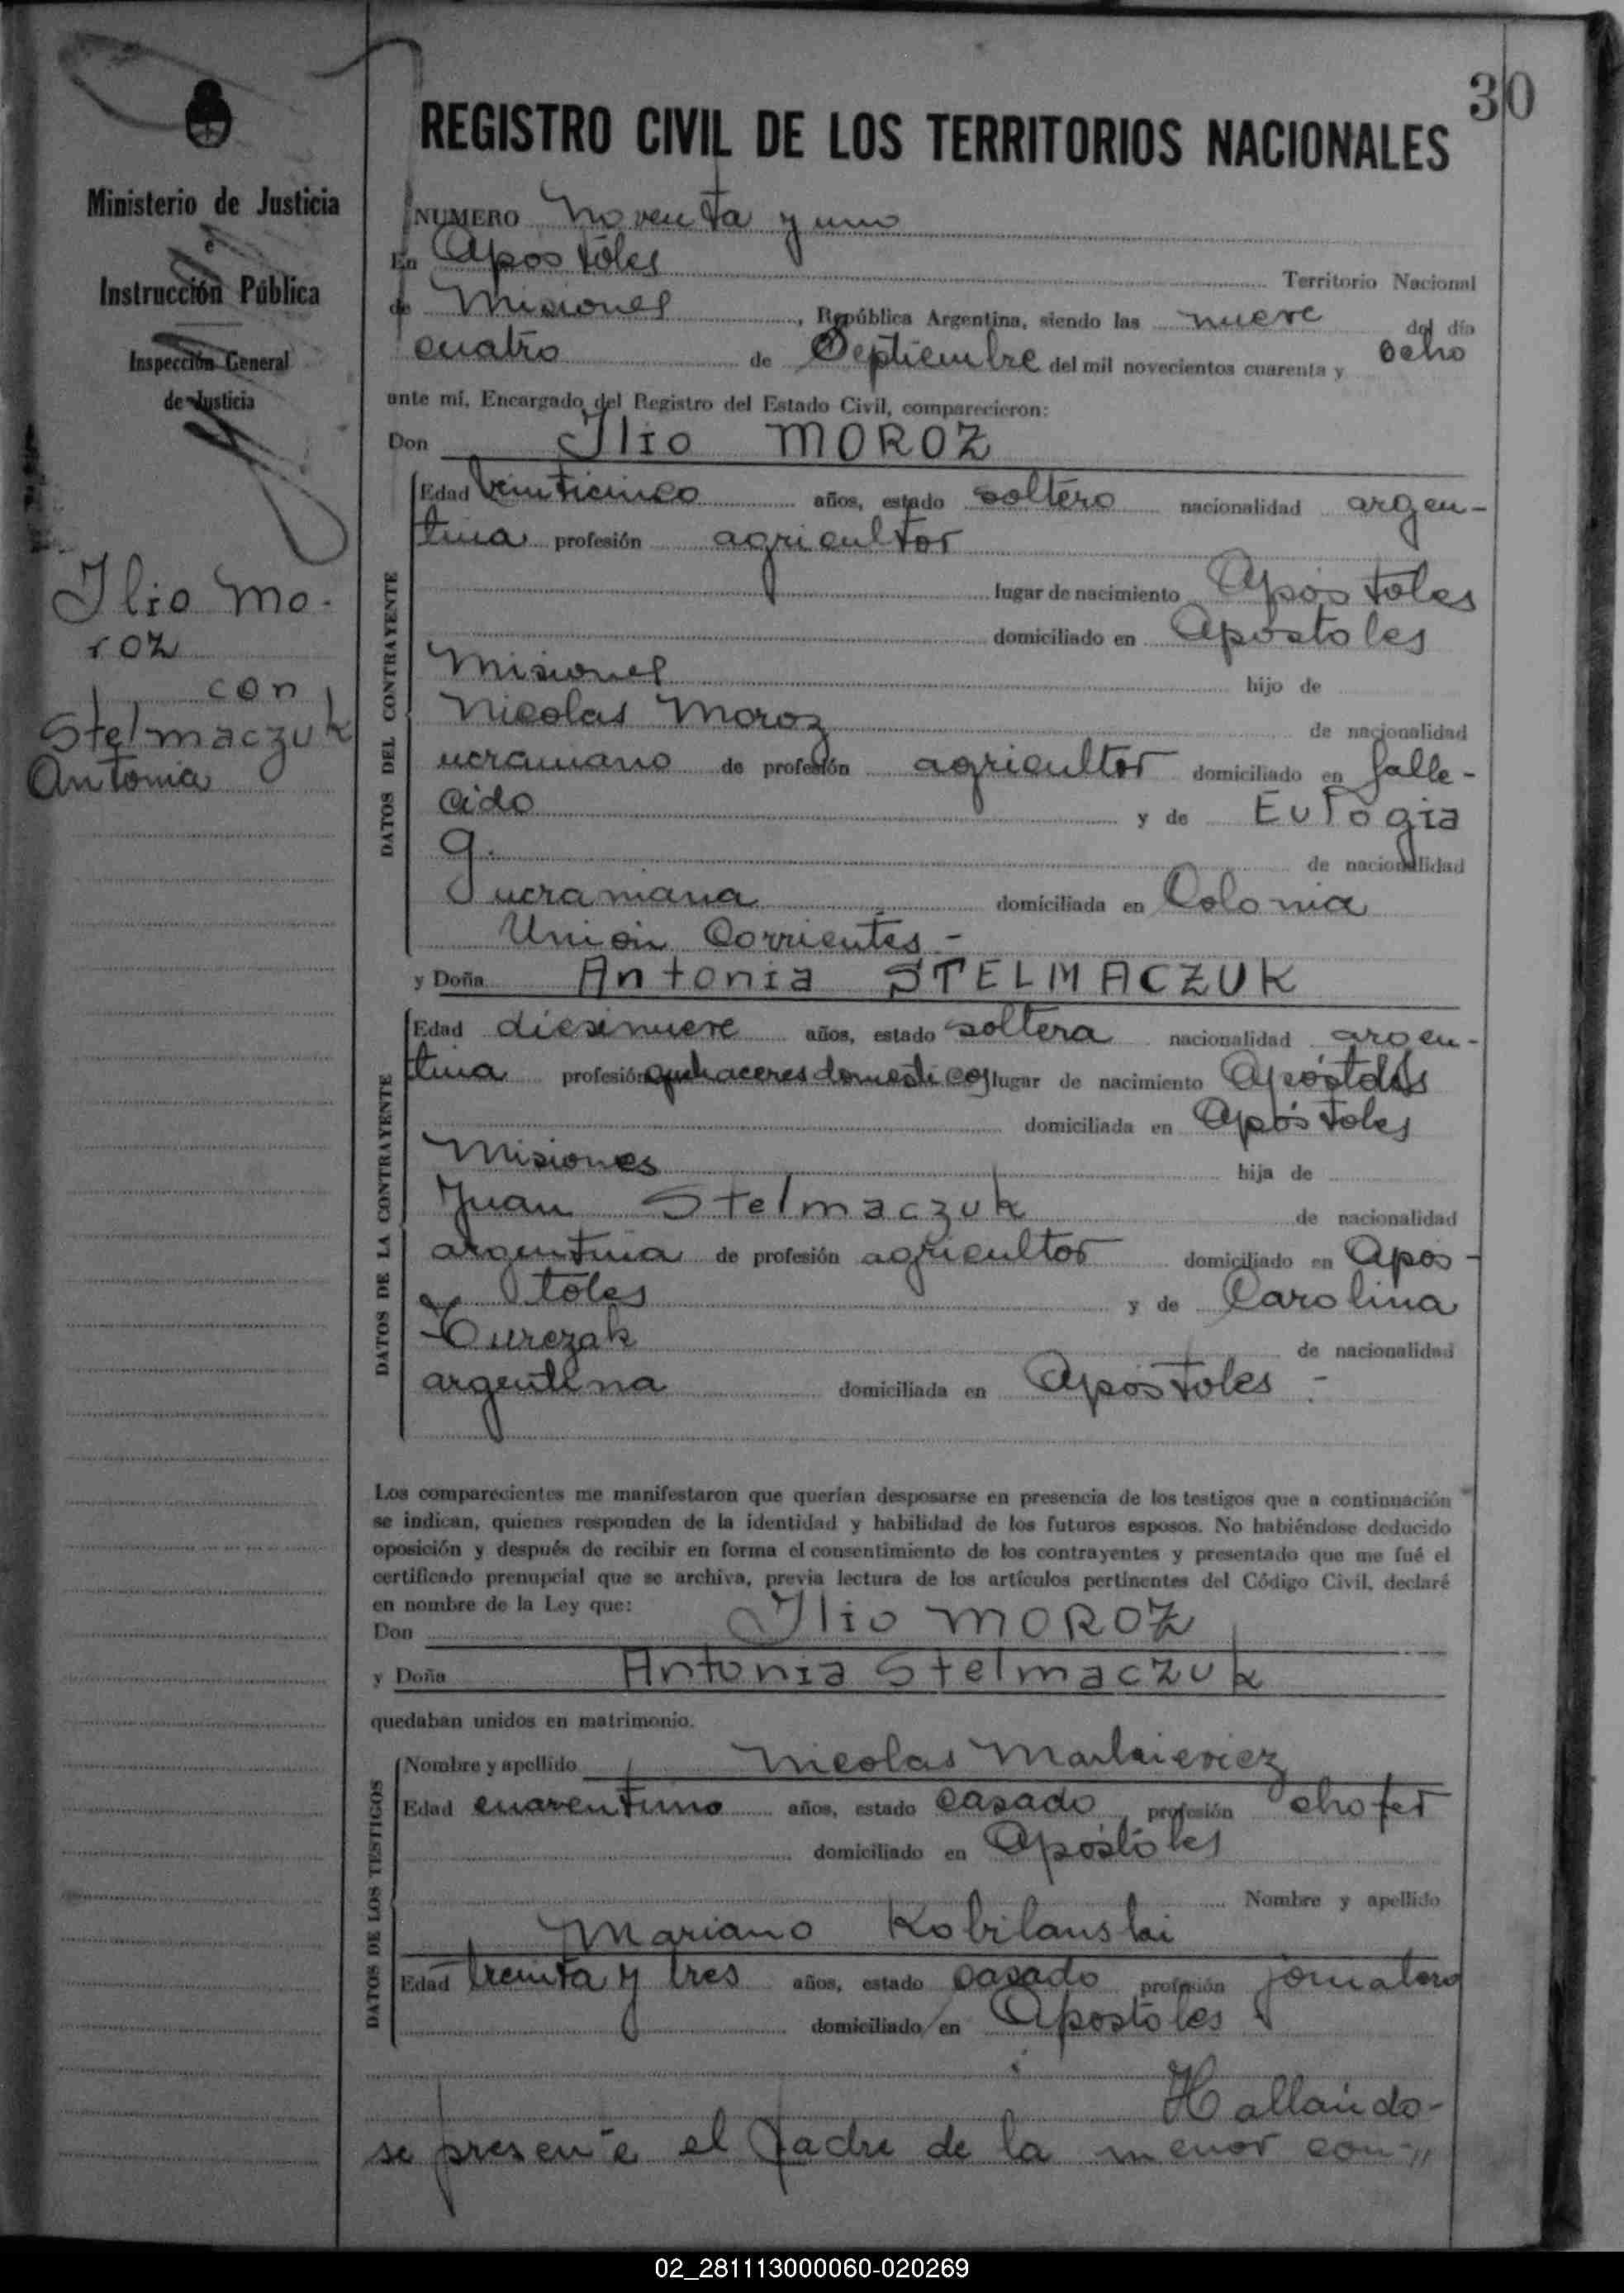 30
REGISTRO CIVIL DE LOS TERRITORIOS NACIONALES
Ministerio de Justicia
é
Instrucción Pública
Inspección General
de Justicia
Ilio Mo-
roz
con
Stelmaczuk
Antonia
NUMERO Noventa y uno
En Apóstoles Territorio Nacional
de Misiones, República Argentina, siendo las nueve del día
cuatro de Septiembre del mil novecientos cuarenta y ocho
ante mí, Encargado del Registro del Estado Civil, comparecieron:
Don Ilio MOROZ
DATOS DEL CONTRAYENTE
Edad veinticinco años, estado soltero nacionalidad argen-
tina profesión agricultor
lugar de nacimiento Apóstoles
domiciliado en Apóstoles
Misiones hijo de
Nicolas Moroz de nacionalidad
ucraniano de profesión agricultor domiciliado en falle-
cido y de Eulogia
de nacionalidad
ucraniana domiciliada en Colonia
Unión Corrientes -
y Doña Antonia STELMACZUK
DATOS DE LA CONTRAYENTE
Edad diesinueve años, estado soltera nacionalidad argen-
tina profesión quehaceres domesticos lugar de nacimiento Apóstoles
domiciliada en Apóstoles
Misiones hija de
Juan Stelmaczuk de nacionalidad
argentina de profesión agricultor domiciliado en Apos-
toles y de Carolina
de nacionalidad
argentina domiciliada en Apóstoles -
Los comparecientes me manifestaron que querían desposarse en presencia de los testigos que a continuación
se indican, quienes responden de la identidad y habilidad de los futuros esposos. No habiéndose deducido
oposición y después de recibir en forma el consentimiento de los contrayentes y presentado que me fué el
certificado prenupcial que se archiva, previa lectura de los artículos pertinentes del Código Civil, declaré
en nombre de la Ley que:
Don Ilio MOROZ
y Doña Antonia Stelmaczuk
quedaban unidos en matrimonio.
DATOS DE LOS TESTIGOS
Nombre y apellido Nicolas Markievicz
Edad cuarentiuno años, estado casado profesión chofer
domiciliado en Apóstoles
Nombre y apellido
Mariano Kobilanski
Edad treinta y tres años, estado casado profesión jornalero
domiciliado en Apostoles
Hallándo-
se presente el padre de la menor con-//
02_281113000060-020269